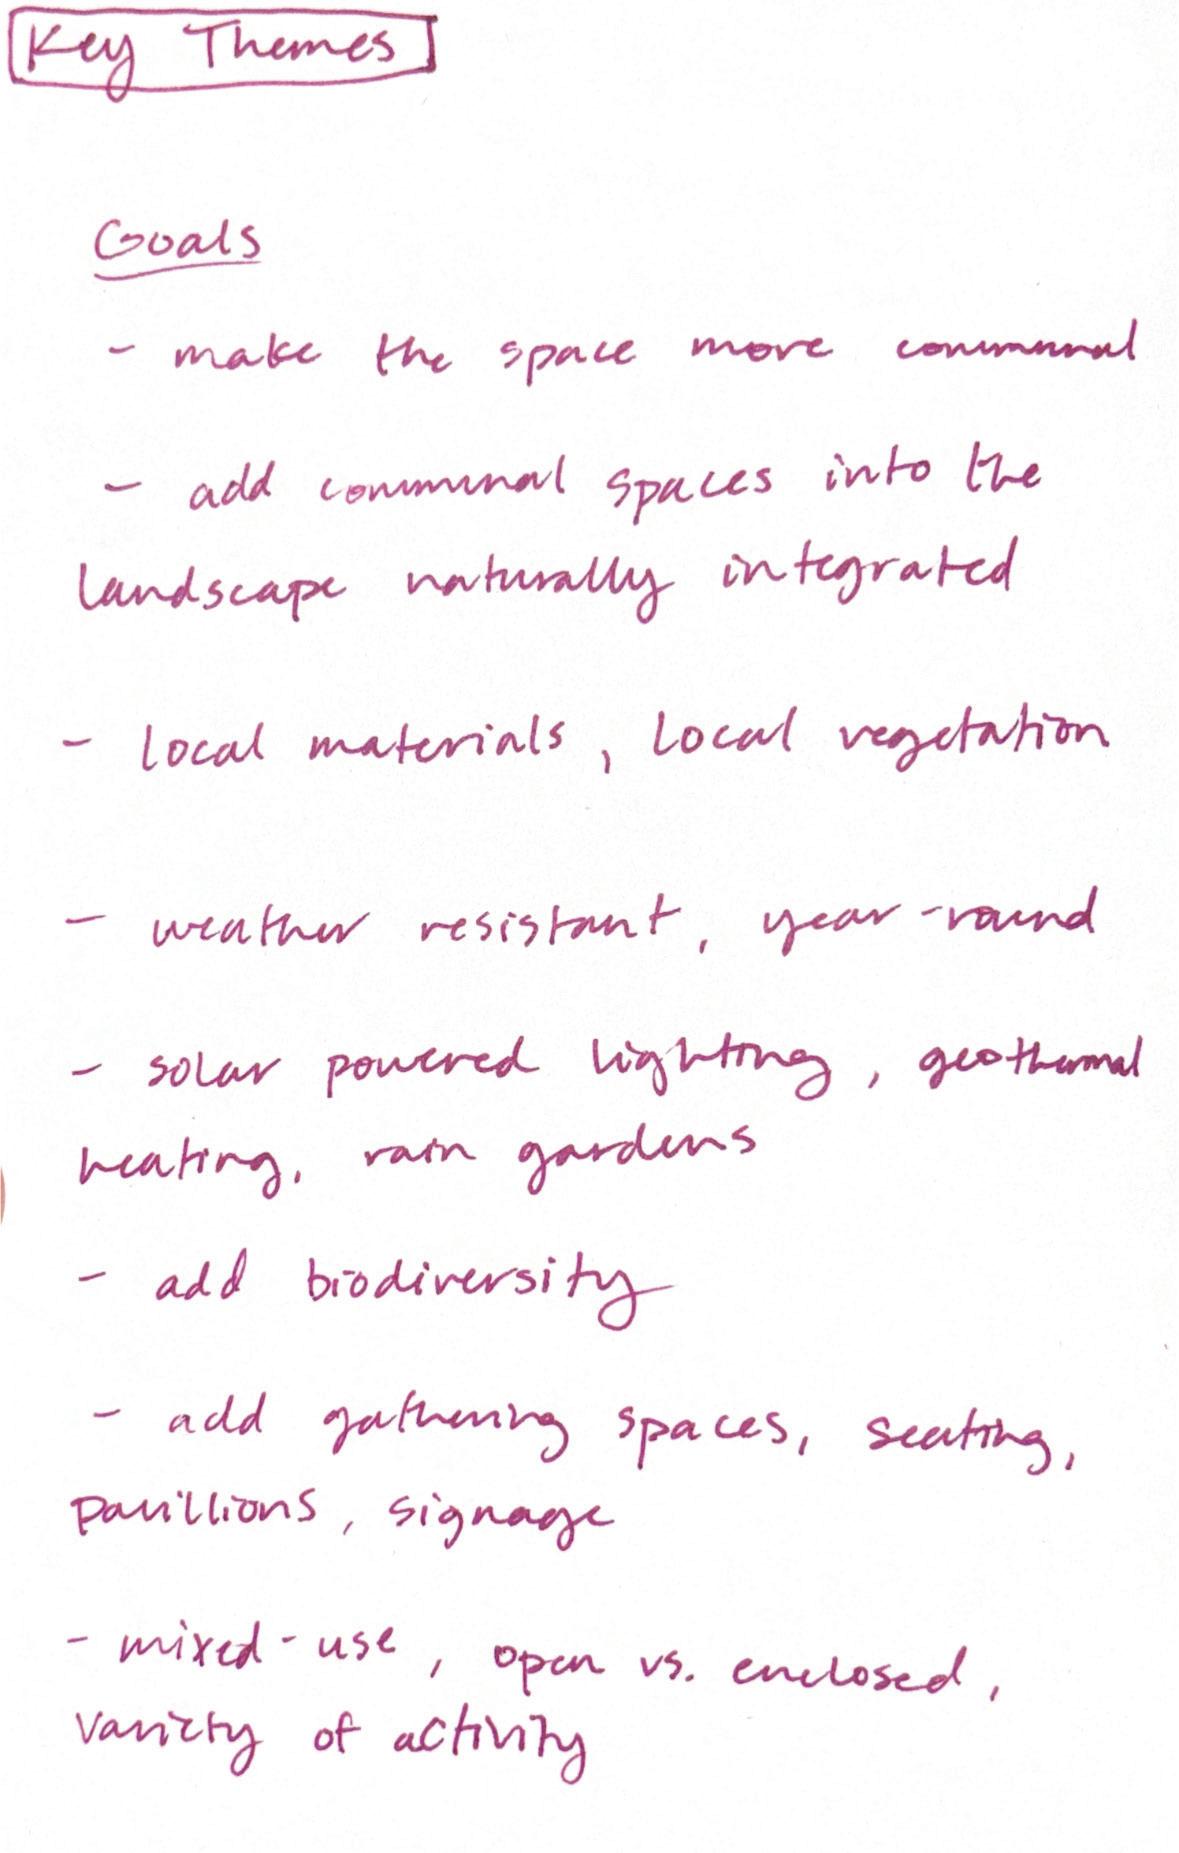 Key Themes
Goals
- make the space more communal
- add communal spaces into the
landscape naturally integrated
- local materials, local vegetation
- weather resistant, year-round
- solar powered lighting, geothermal
heating, rain gardens
- add biodiversity
- add gathering spaces, seating,
pavillions, signage
- mixed-use, open vs. enclosed,
variety of activity